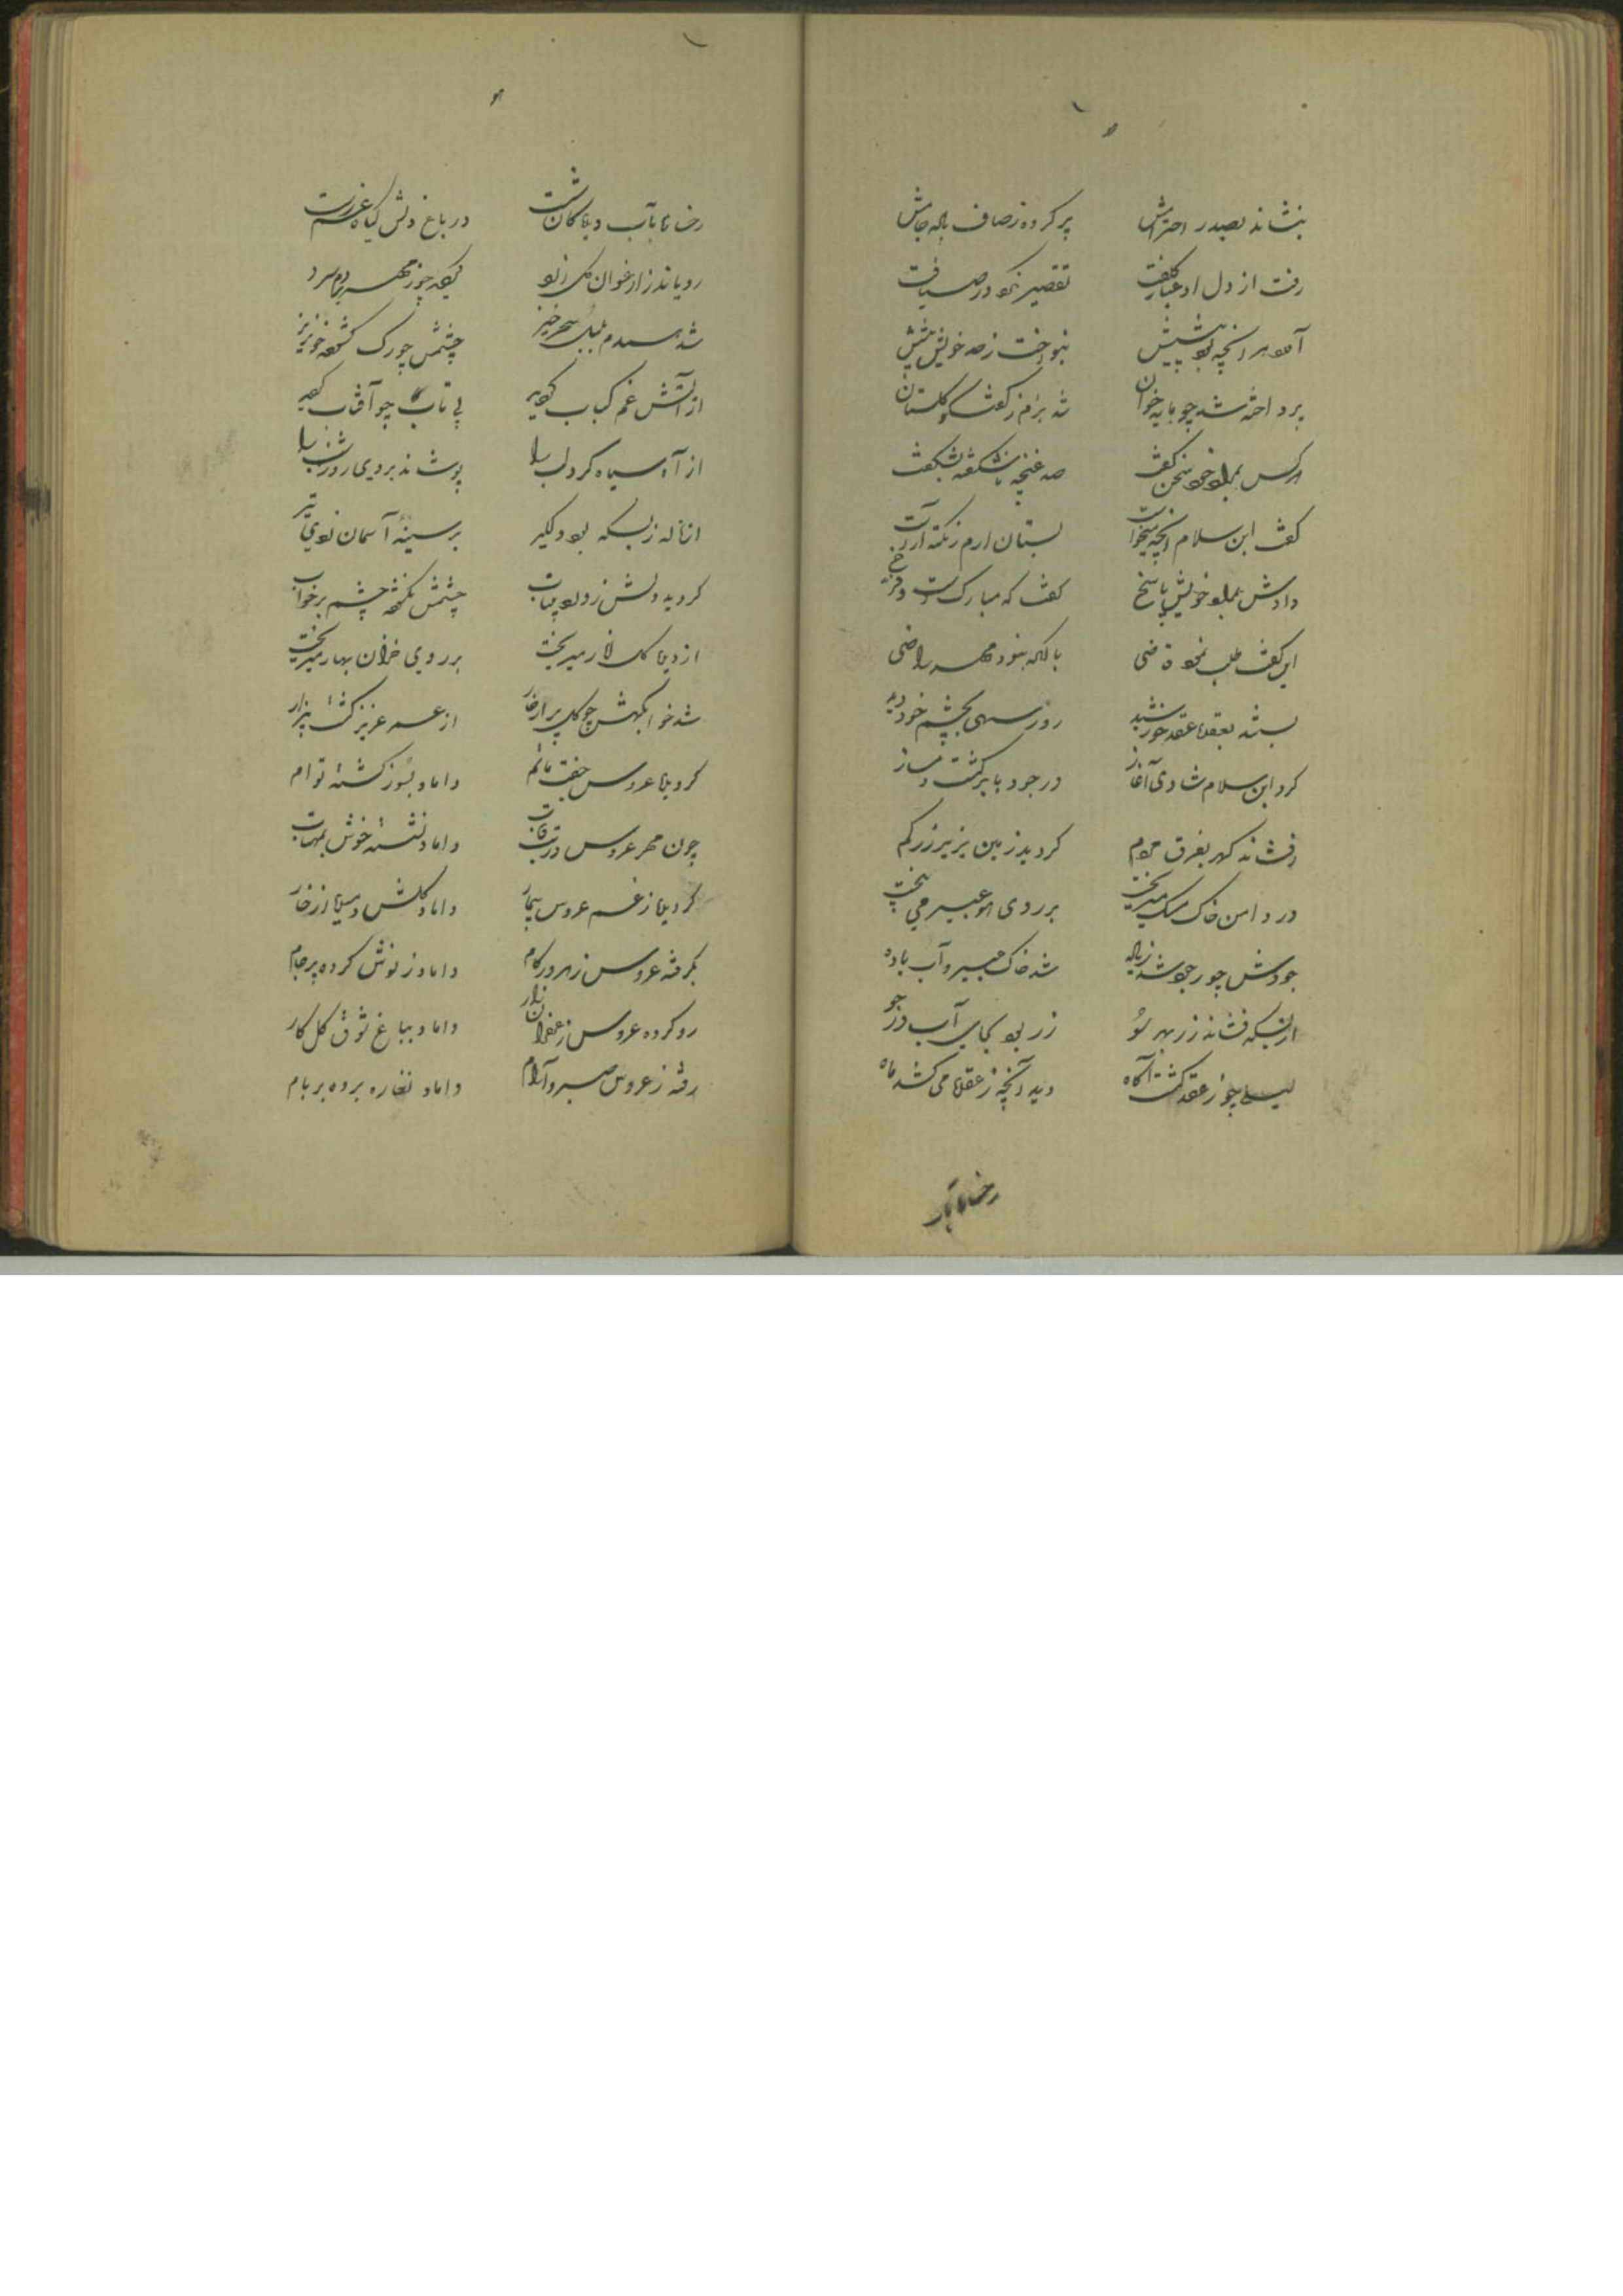 بنشاند بصدر احترامش پر کرده ز صاف باده جامش
رفت از دل او غبار کلفت تقصیر نکرد در ضیافت
پرداخته شد چو مایه خوان شد بزم ز گفت و گو گلستان
هر کس بعلو خود سخن گفت صد غنچه ناشکفته بشکفت
گفت ابن سلام آنچه میخواست بستان ارم ز نکته آراست
دادش بعلو خویش پاسخ گفتا که مبارکست و فرخ
این گفت طلب نمود قاضی
بستند بعقد عقد خورشید روز سیهی بچشم خود دید
کرد ابن سلام شادی آغاز در جود با بر گشت دمساز
افشاند گهر بفرق مردم گردید زمین بزیر زر گم
در دامن خاک مشک میریخت بر روی هوا عبیر می بیخت
جودش چو ز جو شد زیاده شد خاک عبیر و آب باده
از بسکه فشاند زر بهر سو زر بود بجای آب در جو
لیلی چو ز عقد گشت آگاه دید آنچه ز عقده می کشد ماه
رخساره بآب
رخساره بآب دیدگان شست در باغ دلش گیاه غم رست
رویاند ز ارغوان گل زرد
شد همدم بلبل سحرخیز چشمش چو رک گشوده خونریز
از آتش غم کباب گردید بی تاب چو آفتاب گردید
از آه سیاه کرد لب را پوشاند بروی روز شب را
از ناله ز بسکه بود دلگیر بر سینه آسمان زدی تیر
گردید دلش ز درد بیتاب چشمش نگشود چشم بر خواب
از دیده گلاب میریخت بر روی خزان بهار میریخت
شد خوابگهش چو گل پر از خار از عمر عزیز گشت بیزار
گردیده عروس جفت ماتم داماد بسور گشته توام
چون مهر عروس در تب و تاب داماد نشسته خوش بمهتاب
گردیده ز غم عروس بیمار داماد گلش دمیده از خار
بگرفته عروس زهر در کام داماد ز نوش کرده پر جام
رو کرده عروس زعفران زار داماد بباغ شوق گل کار
رفته ز عروس صبر و آرام داماد نقاره برده بر بام